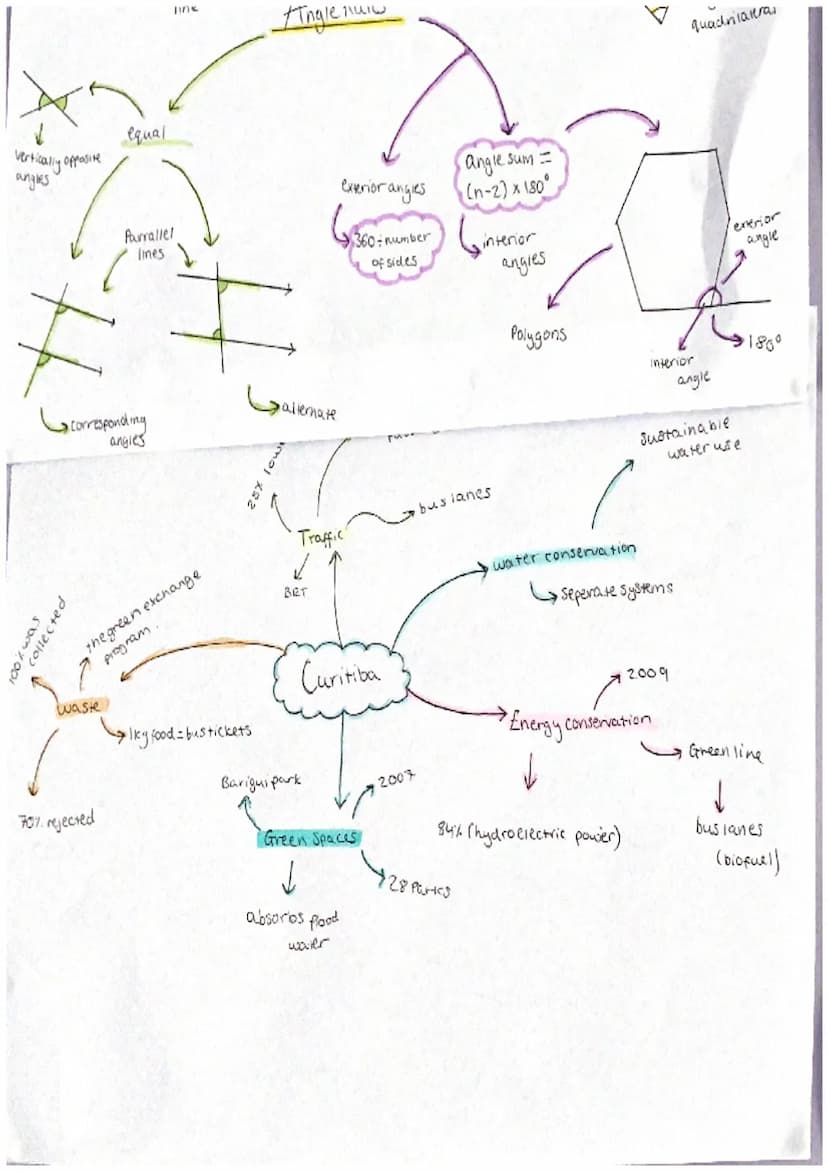 line
Angle rules
quadrilateral
equal
vertically opposite
angles
Parrallel
lines
corresponding
angles
alternate
exterior angles
360÷number
of sides
angle sum =
(n-2) x 180°
interior
angles
Polygons
exterior
angle
interior
angle
180°
Traffic
bus lanes
BRT
sustainable
water use
water conservation
seperate systems
Curitiba
100% was
collected
the green exchange
program.
waste
1kg food = bus tickets
70% rejected
Energy conservation
2009
Green line
bus lanes
(biofuel)
84% (hydroelectric power)
Barigui park
2007
Green spaces
28 Parks
absorbs flood
water